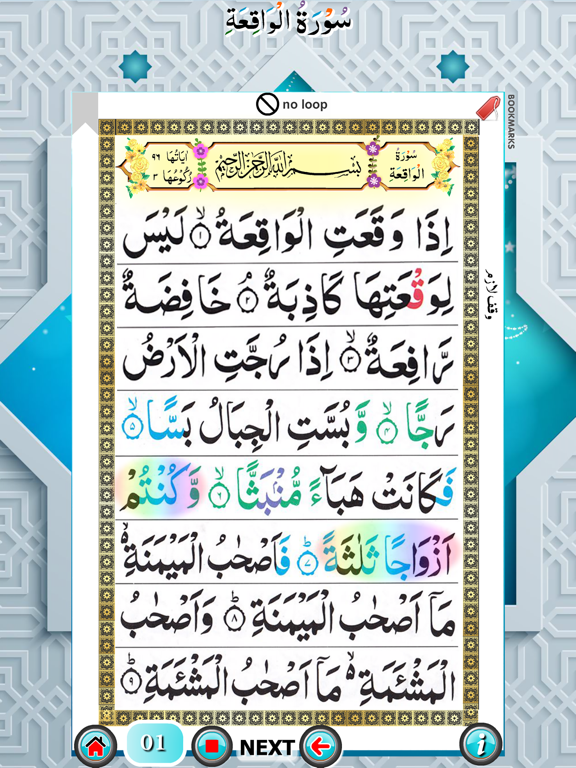 سُوْرَةُ الْوَاقِعَةِ
no loop
BOOKMARKS
سُوْرَةُ الْوَاقِعَةِ
بِسْمِ اللّٰهِ الرَّحْمٰنِ الرَّحِيْمِ
اٰيَاتُهَا ٩٦
رُكُوْعُهَا ٣
اِذَا وَقَعَتِ الْوَاقِعَةُ ۙ‏﴿۱﴾ لَيْسَ
لِوَقْعَتِهَا كَاذِبَةٌ ۘ‏﴿۲﴾ خَافِضَةٌ
وقف لازم
رَّافِعَةٌ ۙ‏﴿۳﴾ اِذَا رُجَّتِ الْاَرْضُ
رَجًّا ۙ‏﴿۴﴾ وَّ بُسَّتِ الْجِبَالُ بَسًّا ۙ‏﴿۵﴾
فَكَانَتْ هَبَآءً مُّنْۢبَثًّا ۙ‏﴿۶﴾ وَّ كُنْتُمْ
اَزْوَاجًا ثَلٰثَةً ؕ‏﴿۷﴾ فَاَصْحٰبُ الْمَيْمَنَةِ ۙ
مَاۤ اَصْحٰبُ الْمَيْمَنَةِ ؕ‏﴿۸﴾ وَاَصْحٰبُ
الْمَشْئَمَةِ ۙ مَاۤ اَصْحٰبُ الْمَشْئَمَةِ ؕ‏﴿۹﴾
01
NEXT
i